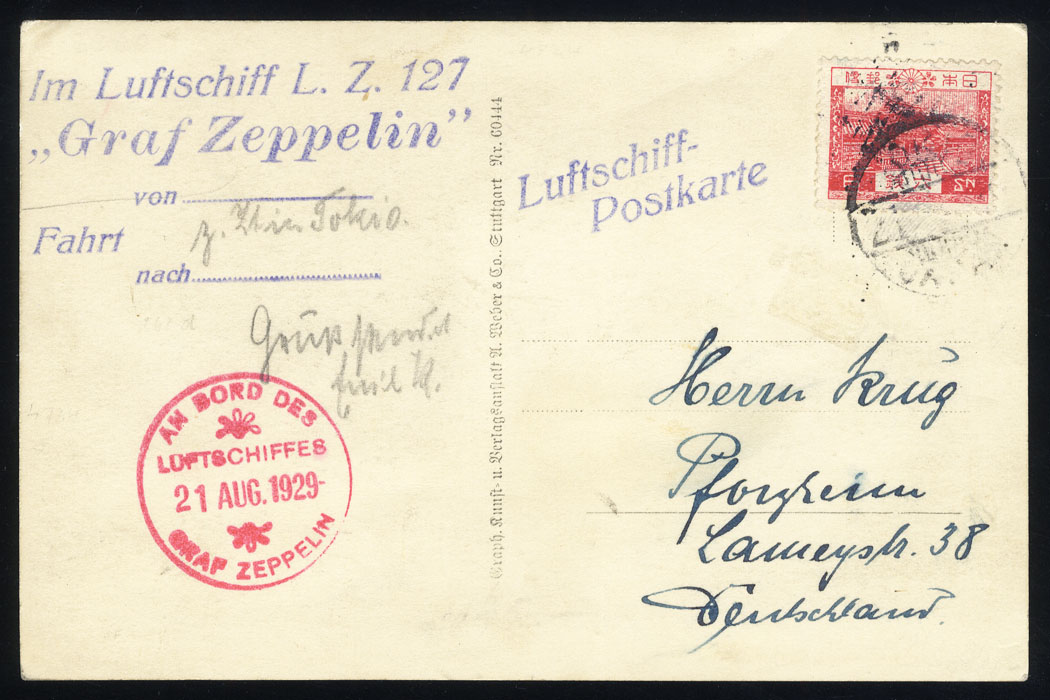 Im Luftschiff L. Z. 127
„Graf Zeppelin”
von
z. Zt in Tokio.
Fahrt
nach
Gruß sendet
Emil
AN BORD DES
LUFTSCHIFFES
21 AUG. 1929-
GRAF ZEPPELIN
Graph. Kunst- u. Verlagsanstalt A. Weber & Co., Stuttgart Nr. 60444
Luftschiff-
Postkarte
日本郵便
Herrn Krug
Pforzheim
Lameystr. 38
Deutschland.